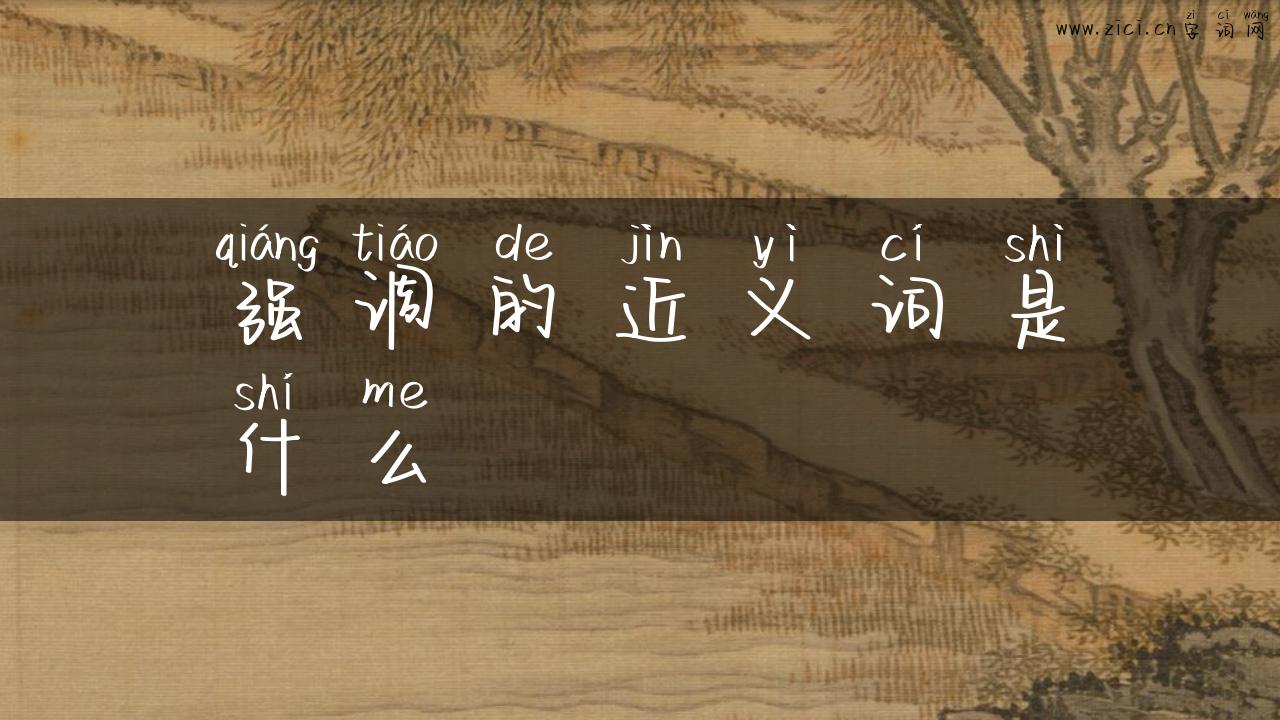 zì cí wǎng
www.zici.cn字词网
qiáng tiáo de jìn yì cí shì
强调的近义词是
shí me
什么